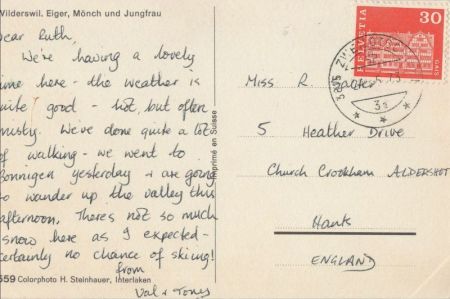 Wilderswil. Eiger, Mönch und Jungfrau
ear Ruth,
We're having a lovely
ime here - the weather is
uite good - hot, but often
misty. We've done quite a lot
of walking - we went to
onnigen yesterday + are going
to wander up the valley this
afternoon. Theres not so much
snow here as I expected -
ertainly no chance of skiing!
from
Val + Tony
559 Colorphoto H. Steinhauer, Interlaken
Imprimé en Suisse
HELVETIA 30
GAIS
3a
Miss R.
5 Heather Drive
Church Crookham ALDERSHOT
Hants
ENGLAND